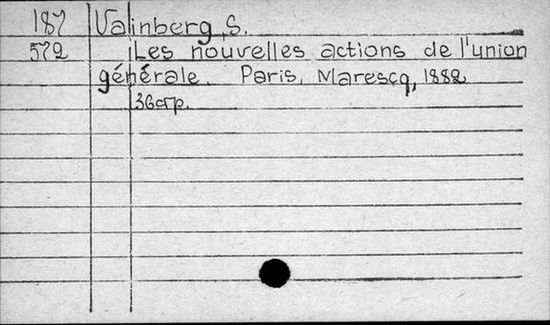 187 Vainberg, S.
572 Les nouvelles actions de l'union
générale. Paris, Marescq, 1882
36стр.